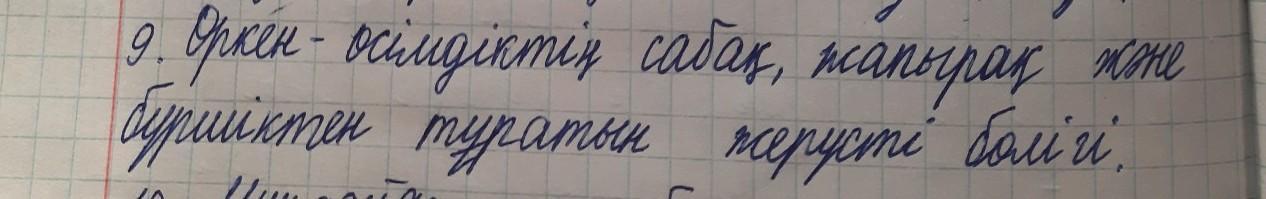 9. Өркен - өсімдіктің сабақ, жапырақ және
бүршіктен тұратын жерүсті бөлігі.